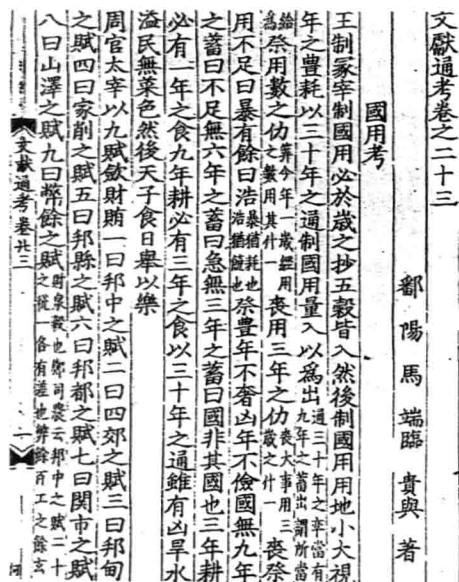 文獻通考卷之二十三
鄱陽馬端臨貴與著
國用考
王制冢宰制國用必於歳之抄五穀皆入然後制國用用地小大視
年之豊耗以三十年之通制國用量入以爲出通三十年之率當有九年之蓄出謂所當
給爲祭用數之仂算今年一歳經用之數用其什一喪用三年之仂喪大事用三歳之什一喪祭
用不足曰暴有餘曰浩暴猶耗也浩猶饒也祭豊年不奢凶年不儉國無九年
之蓄曰不足無六年之蓄曰急無三年之蓄曰國非其國也三年耕
必有一年之食九年耕必有三年之食以三十年之通雖有凶旱水
溢民無菜色然後天子食日舉以樂
周官太宰以九賦斂財賄一曰邦中之賦二曰四郊之賦三曰邦甸
之賦四曰家削之賦五曰邦縣之賦六曰邦都之賦七曰関市之賦
八曰山澤之賦九曰幣餘之賦財泉穀也鄭司農云邦中之賦二十之税一各有差也幣餘百工之餘玄
文獻通考卷廿三 一